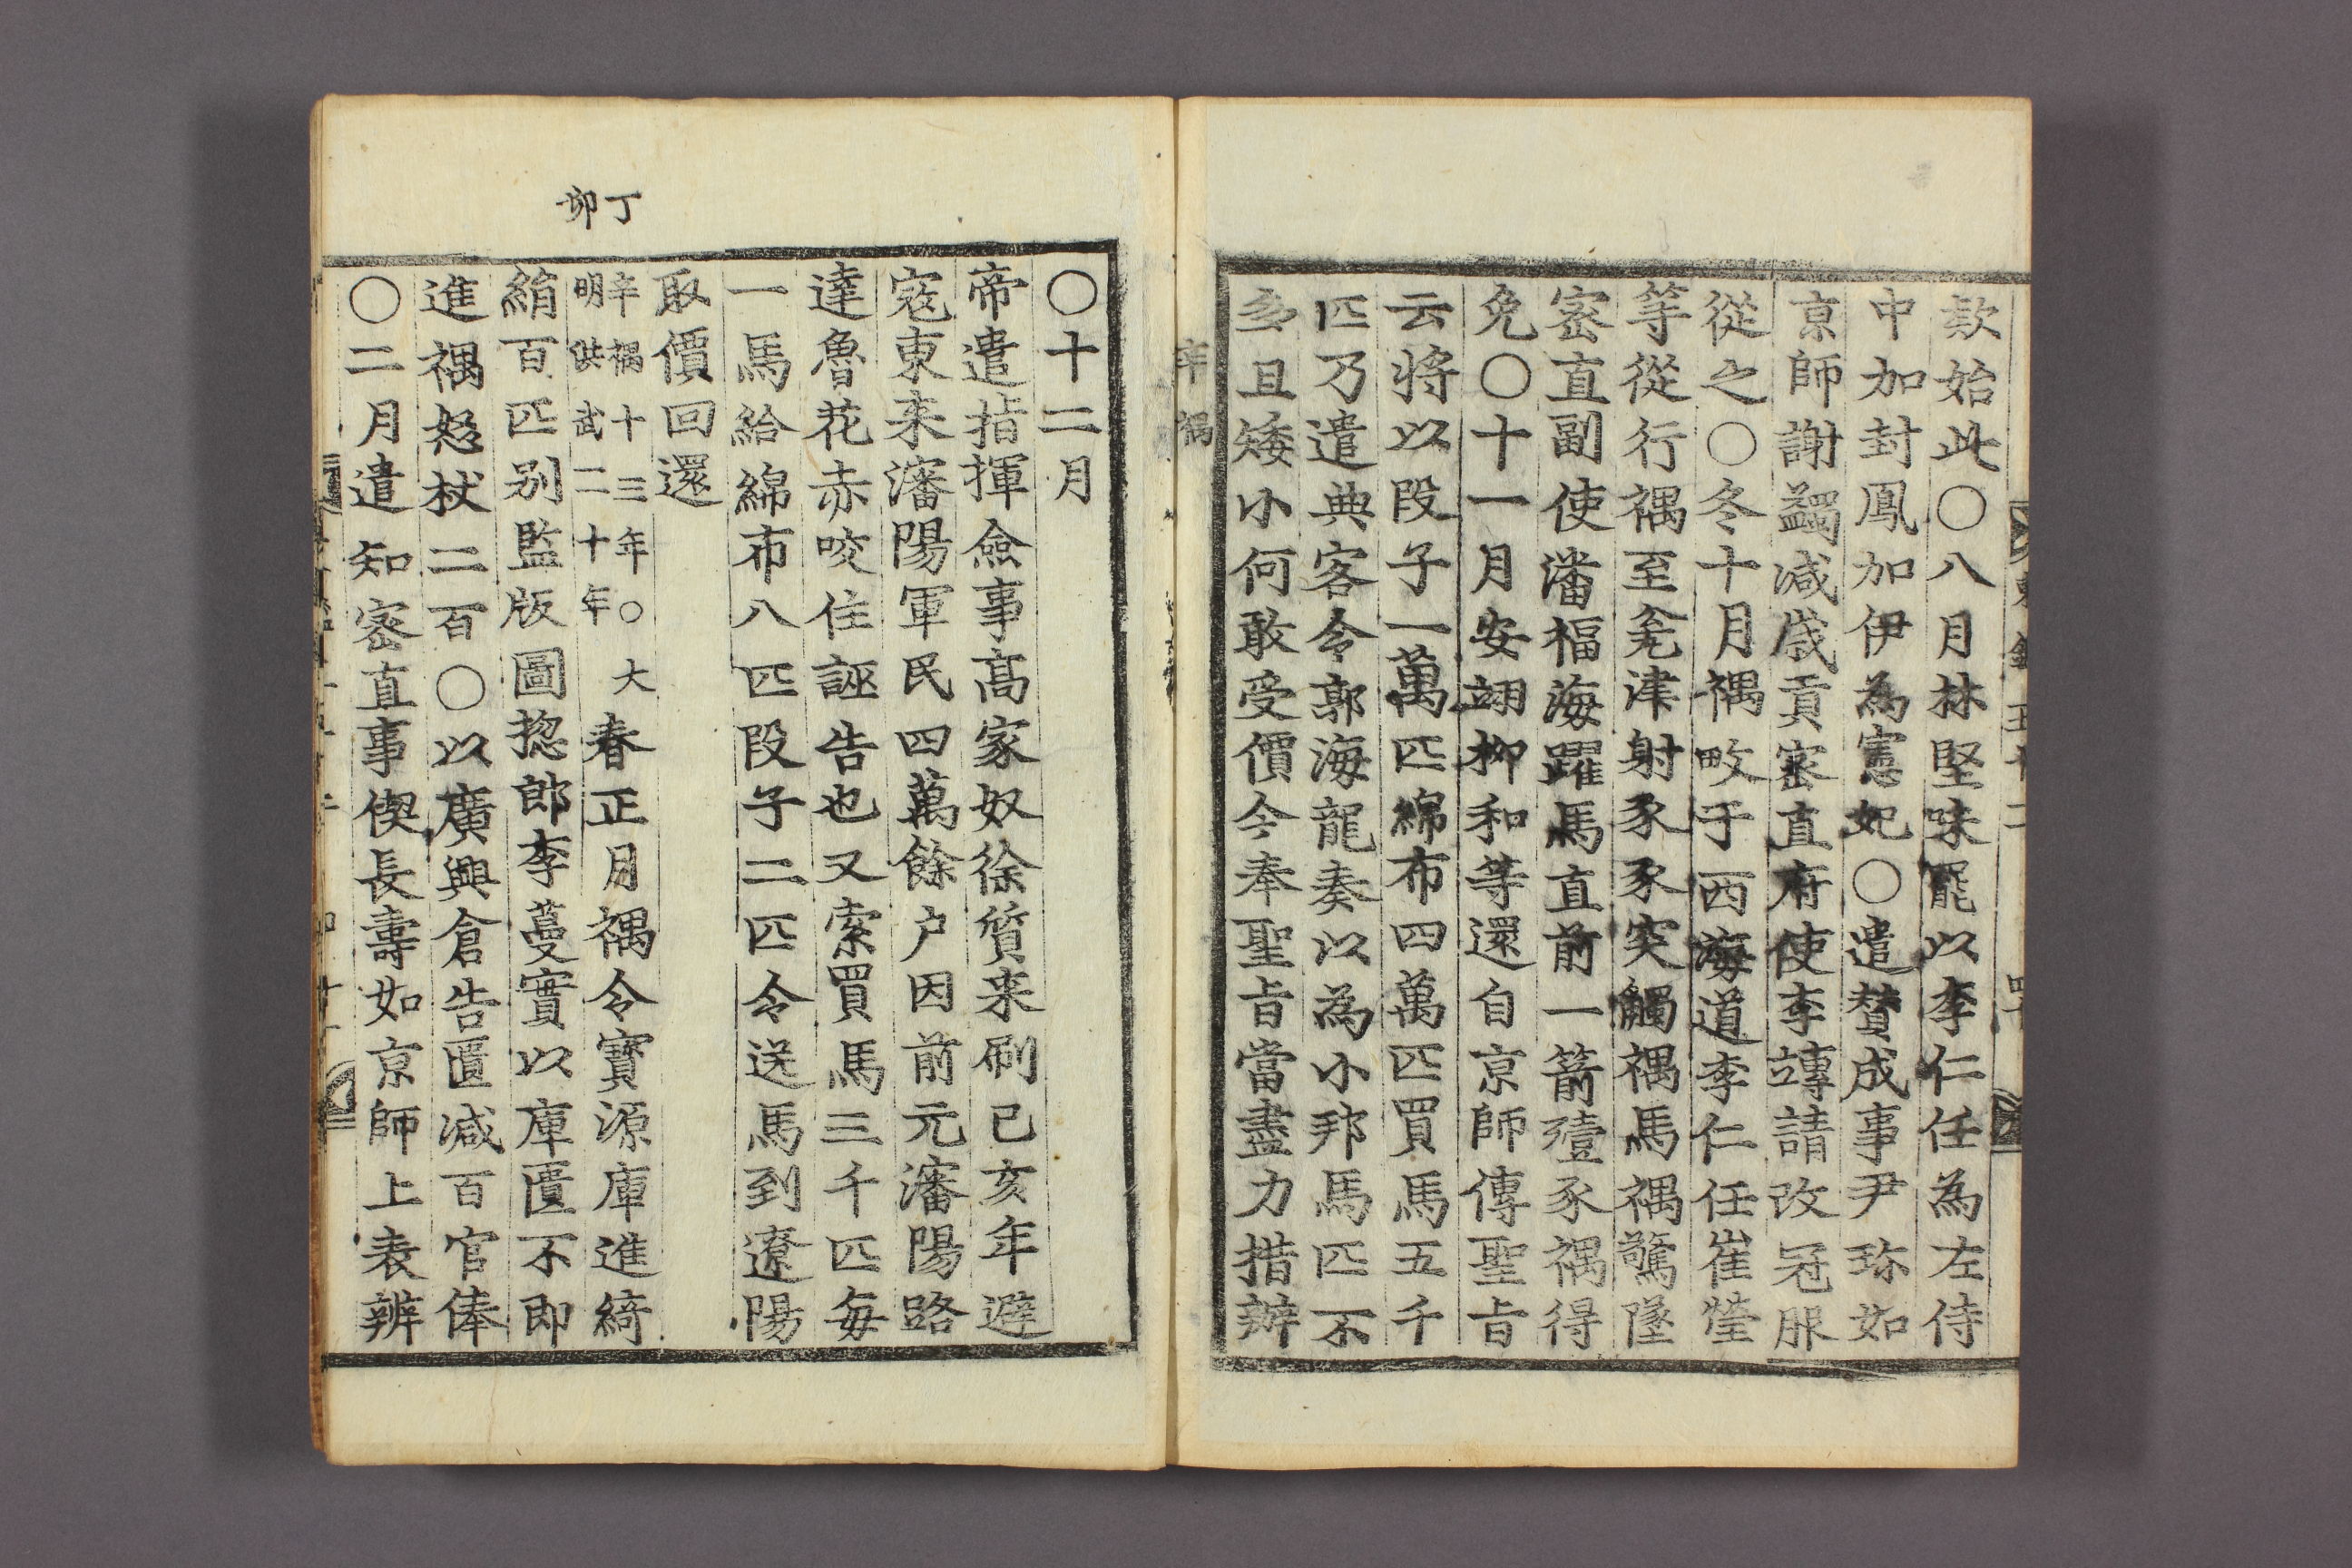 歀始此○八月林堅味罷以李仁任為左侍
中加封鳳加伊為憲妃○遣賛成事尹珎如
京師謝蠲減歲貢密直府使李竱請改冠服
從之○冬十月禑畋于西海道李仁任崔瑩
等從行禑至瓮津射豕豕突觸禑馬禑驚墜
密直副使潘福海躍馬直前一箭殪豕禑得
免○十一月安翊柳和等還自京師傳聖旨
云將以段子一萬匹綿布四萬匹買馬五千
匹乃遣典客令郭海龍奏以為小邦馬匹不
多且矮小何敢受價今奉聖旨當盡力措辦
辛禑
○十二月
帝遣指揮僉事高家奴徐質来刷已亥年避
寇東来瀋陽軍民四萬餘户因前元瀋陽路
達魯花赤咬住誣告也又索買馬三千匹每
一馬給綿布八匹段子二匹令送馬到遼陽
取價回還
丁卯
辛禑十三年○大
明洪武二十年
春正月禑令寶源庫進綺
絹百匹别監版圖摠郎李蔓實以庫匱不即
進禑怒杖二百○以廣興倉告匱減百官俸
○二月遣知密直事偰長壽如京師上表辨